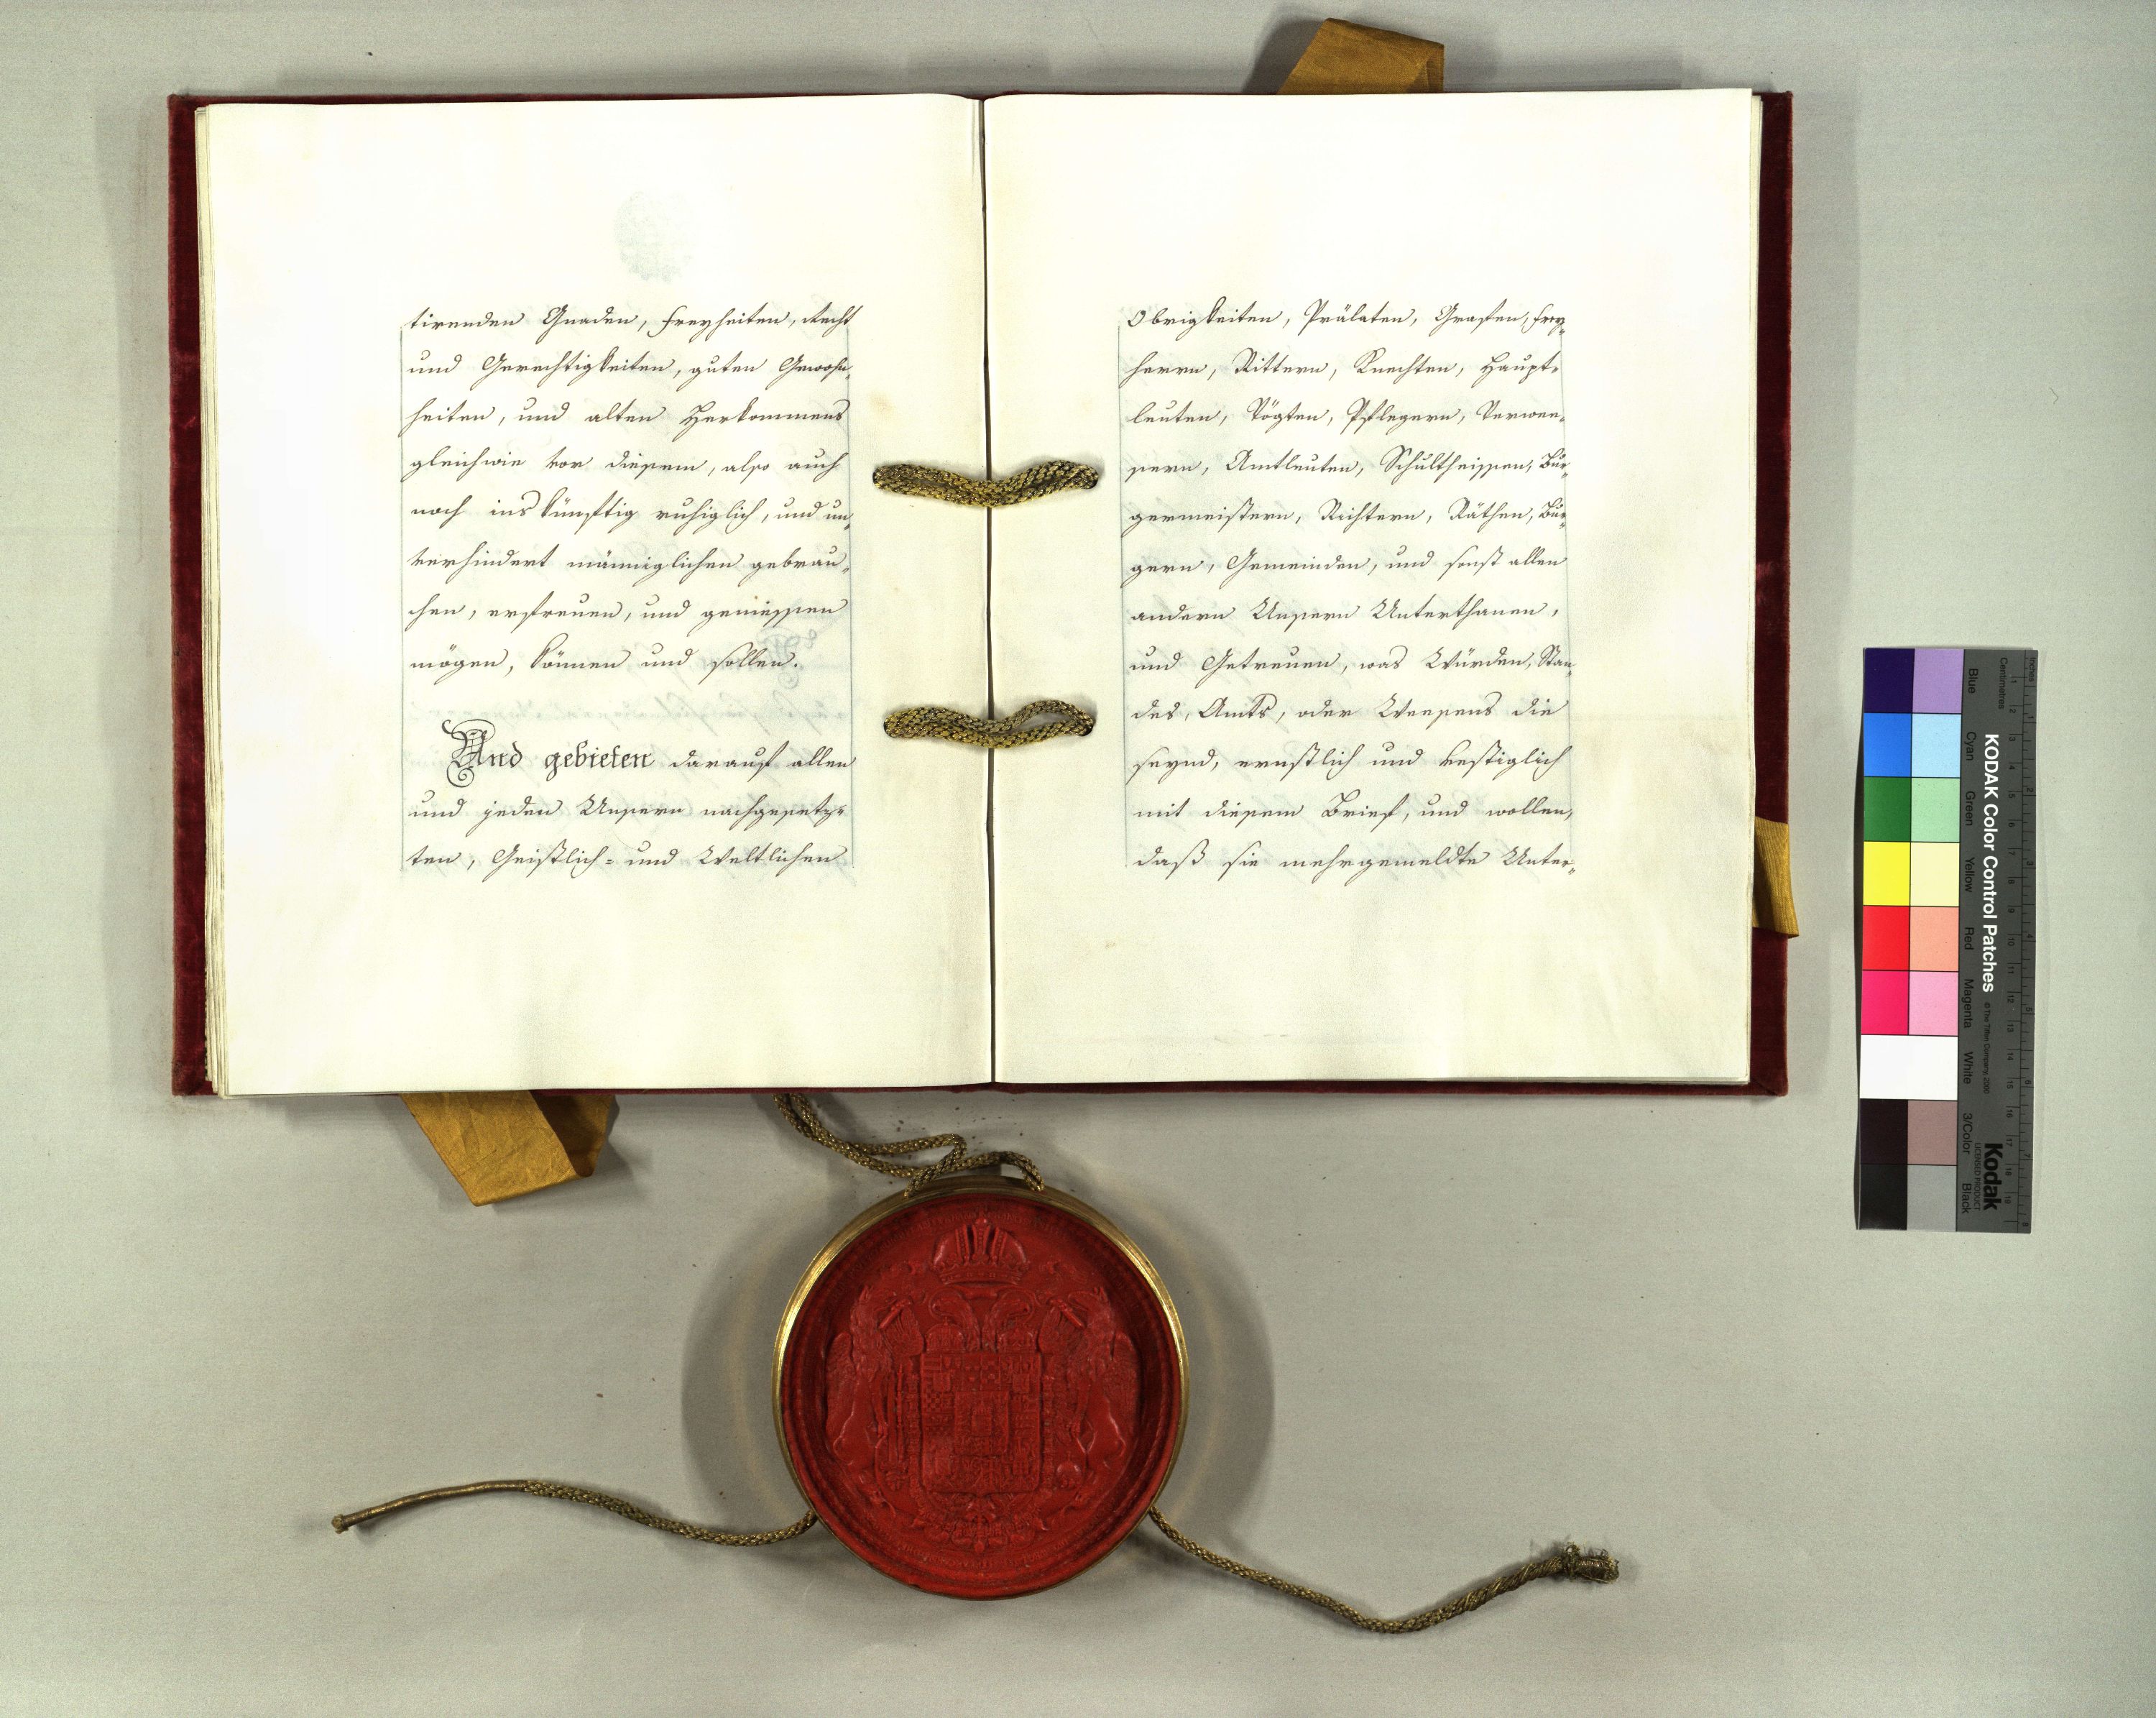 tirenden Gnaden, Freyheiten, Recht
und Gerechtigkeiten, guten Gewohn„
heiten, und alten Herkommens
gleichwie vor diesem, also auch
noch ins künftig ruhiglich, und un„
verhindert männiglichen gebrau„
chen, erfreuen, und geniessen
mögen, können und sollen.
Und gebieten darauf allen
und jeden Unsern nachgesetz„
ten, Geistlich= und Weltlichen
Obrigkeiten, Prälaten, Grafen, Frey„
herrn, Rittern, Knechten, Haupt„
leuten, Vögten, Pflegern, Verwe„
sern, Amtleuten, Schultheissen, Bur„
germeistern, Richtern, Räthen, Bur„
gern, Gemeinden, und sonst allen
andern Unsern Unterthanen,
und Getreuen, was Würden, Stan„
des, Amts, oder Weesens die
seynd, ernstlich und vestiglich
mit diesem Brief, und wollen,
daß sie mehrgemeldte Unter„
KODAK Color Control Patches
© The Tiffen Company, 2000
Kodak
LICENSED PRODUCT
Blue
Cyan
Green
Yellow
Red
Magenta
White
3/Color
Black
Inches
Centimetres